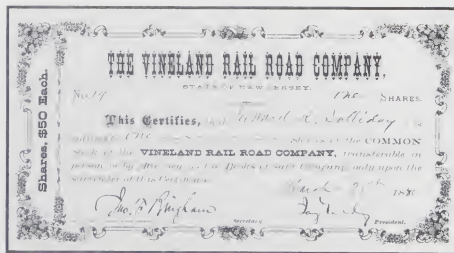 Shares, $50 Each.
THE VINELAND RAIL ROAD COMPANY,
STATE OF NEW JERSEY.
No. 19 One SHARES.
This Certifies, that
One Shares of the COMMON
Stock of the VINELAND RAIL ROAD COMPANY, transferable in
person or by Attorney on the Books of said Company only upon the
surrender of this Certificate.
March
Jno. Bingham Jay Gould
Secretary President.